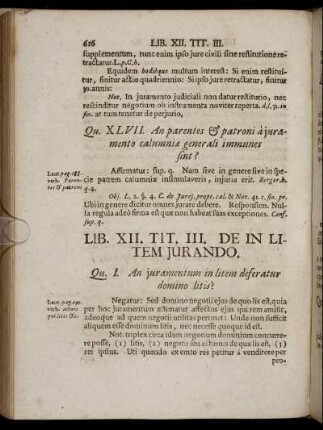 616 LIB. XII. TIT. III.
supplementum, tunc enim ipso jure civili sine restitutione re-
tractatur. L. p. C. h.
Equidem hodièque multum interest: Si enim restitui-
tur, finitur actio quadriennio: Si ipso jure retractatur, finitur
30. annis:
Not. In juramento judiciali non datur restitutio, nec
rescinditur negotium ob instrumenta noviter reperta. d. l. 31. in
fin. at tum tenetur de perjurio.
Qu. XLVII. An parentes & patroni à jura-
mento calumniæ generali immunes
sint?
Affirmatur: sup. q. Nam sive in genere sive in spe-
cie patrem calumniæ insimulaveris, injuria erit. Berger. h.
q. 4.
verb. Paren-
tes & patroni
Obj. L. 2. §. 4. C. de Jurej. propt. cal. & Nov. 41. c. fin. pr.
Ubi in genere dicitur omnes jurare debere. Responsum. Nul-
la regula adeò firma est quæ non habeat suas exceptiones. Conf.
sup. q.
LIB. XII. TIT. III. DE IN LI-
TEM JURANDO.
Qu. I. An juramentum in litem deferatur
domino litis?
Negatur: Sed domino negotii ejus de quo lis est, quia
per hoc juramentum æstimatur affectus ejus qui rem amisit,
adeoque ad quem negotii utilitas pertinet: Unde non sufficit
aliquem esse dominum litis, nec necesse quoque id est.
Not. triplex circa idem negotium dominium concurre-
re posse, (1) litis, (2) negotii seu actionis de qua lis est, (3)
rei ipsius. Uti quando ex emto res petitur à venditore per
pro-